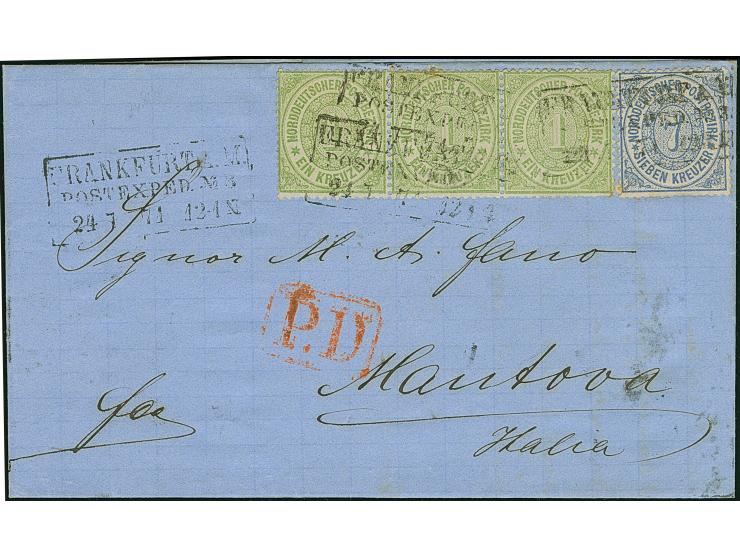 NORDDEUTSCHER POSTBEZIRK
1
* EIN KREUZER *
NORDDEUTSCHER POSTBEZIRK
1
* EIN KREUZER *
NORDDEUTSCHER POSTBEZIRK
1
* EIN KREUZER *
NORDDEUTSCHER POSTBEZIRK
7
* SIEBEN KREUZER *
FRANKFURT A. M.
POSTEXPED. № 3
24 7 71 12-1 N
FRANKFURT
POSTEXPED.
24 7
Signor M. A. Fano
P.D
fco
Mantova
Italia